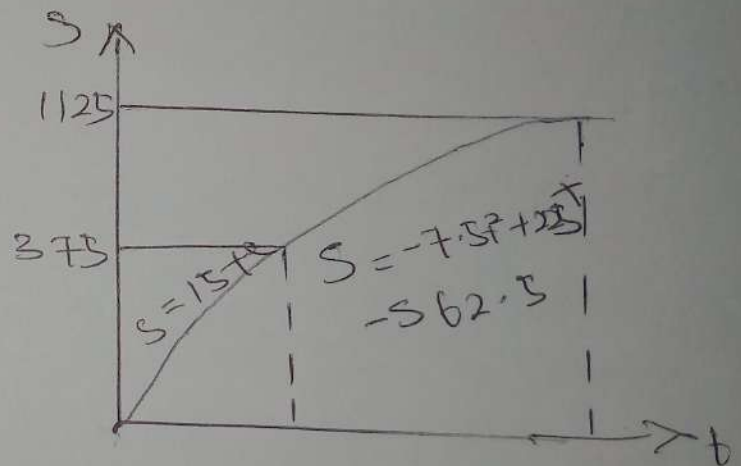 S
1125
375
S=15t²
S=-7.5t²+225t
-562.5
t